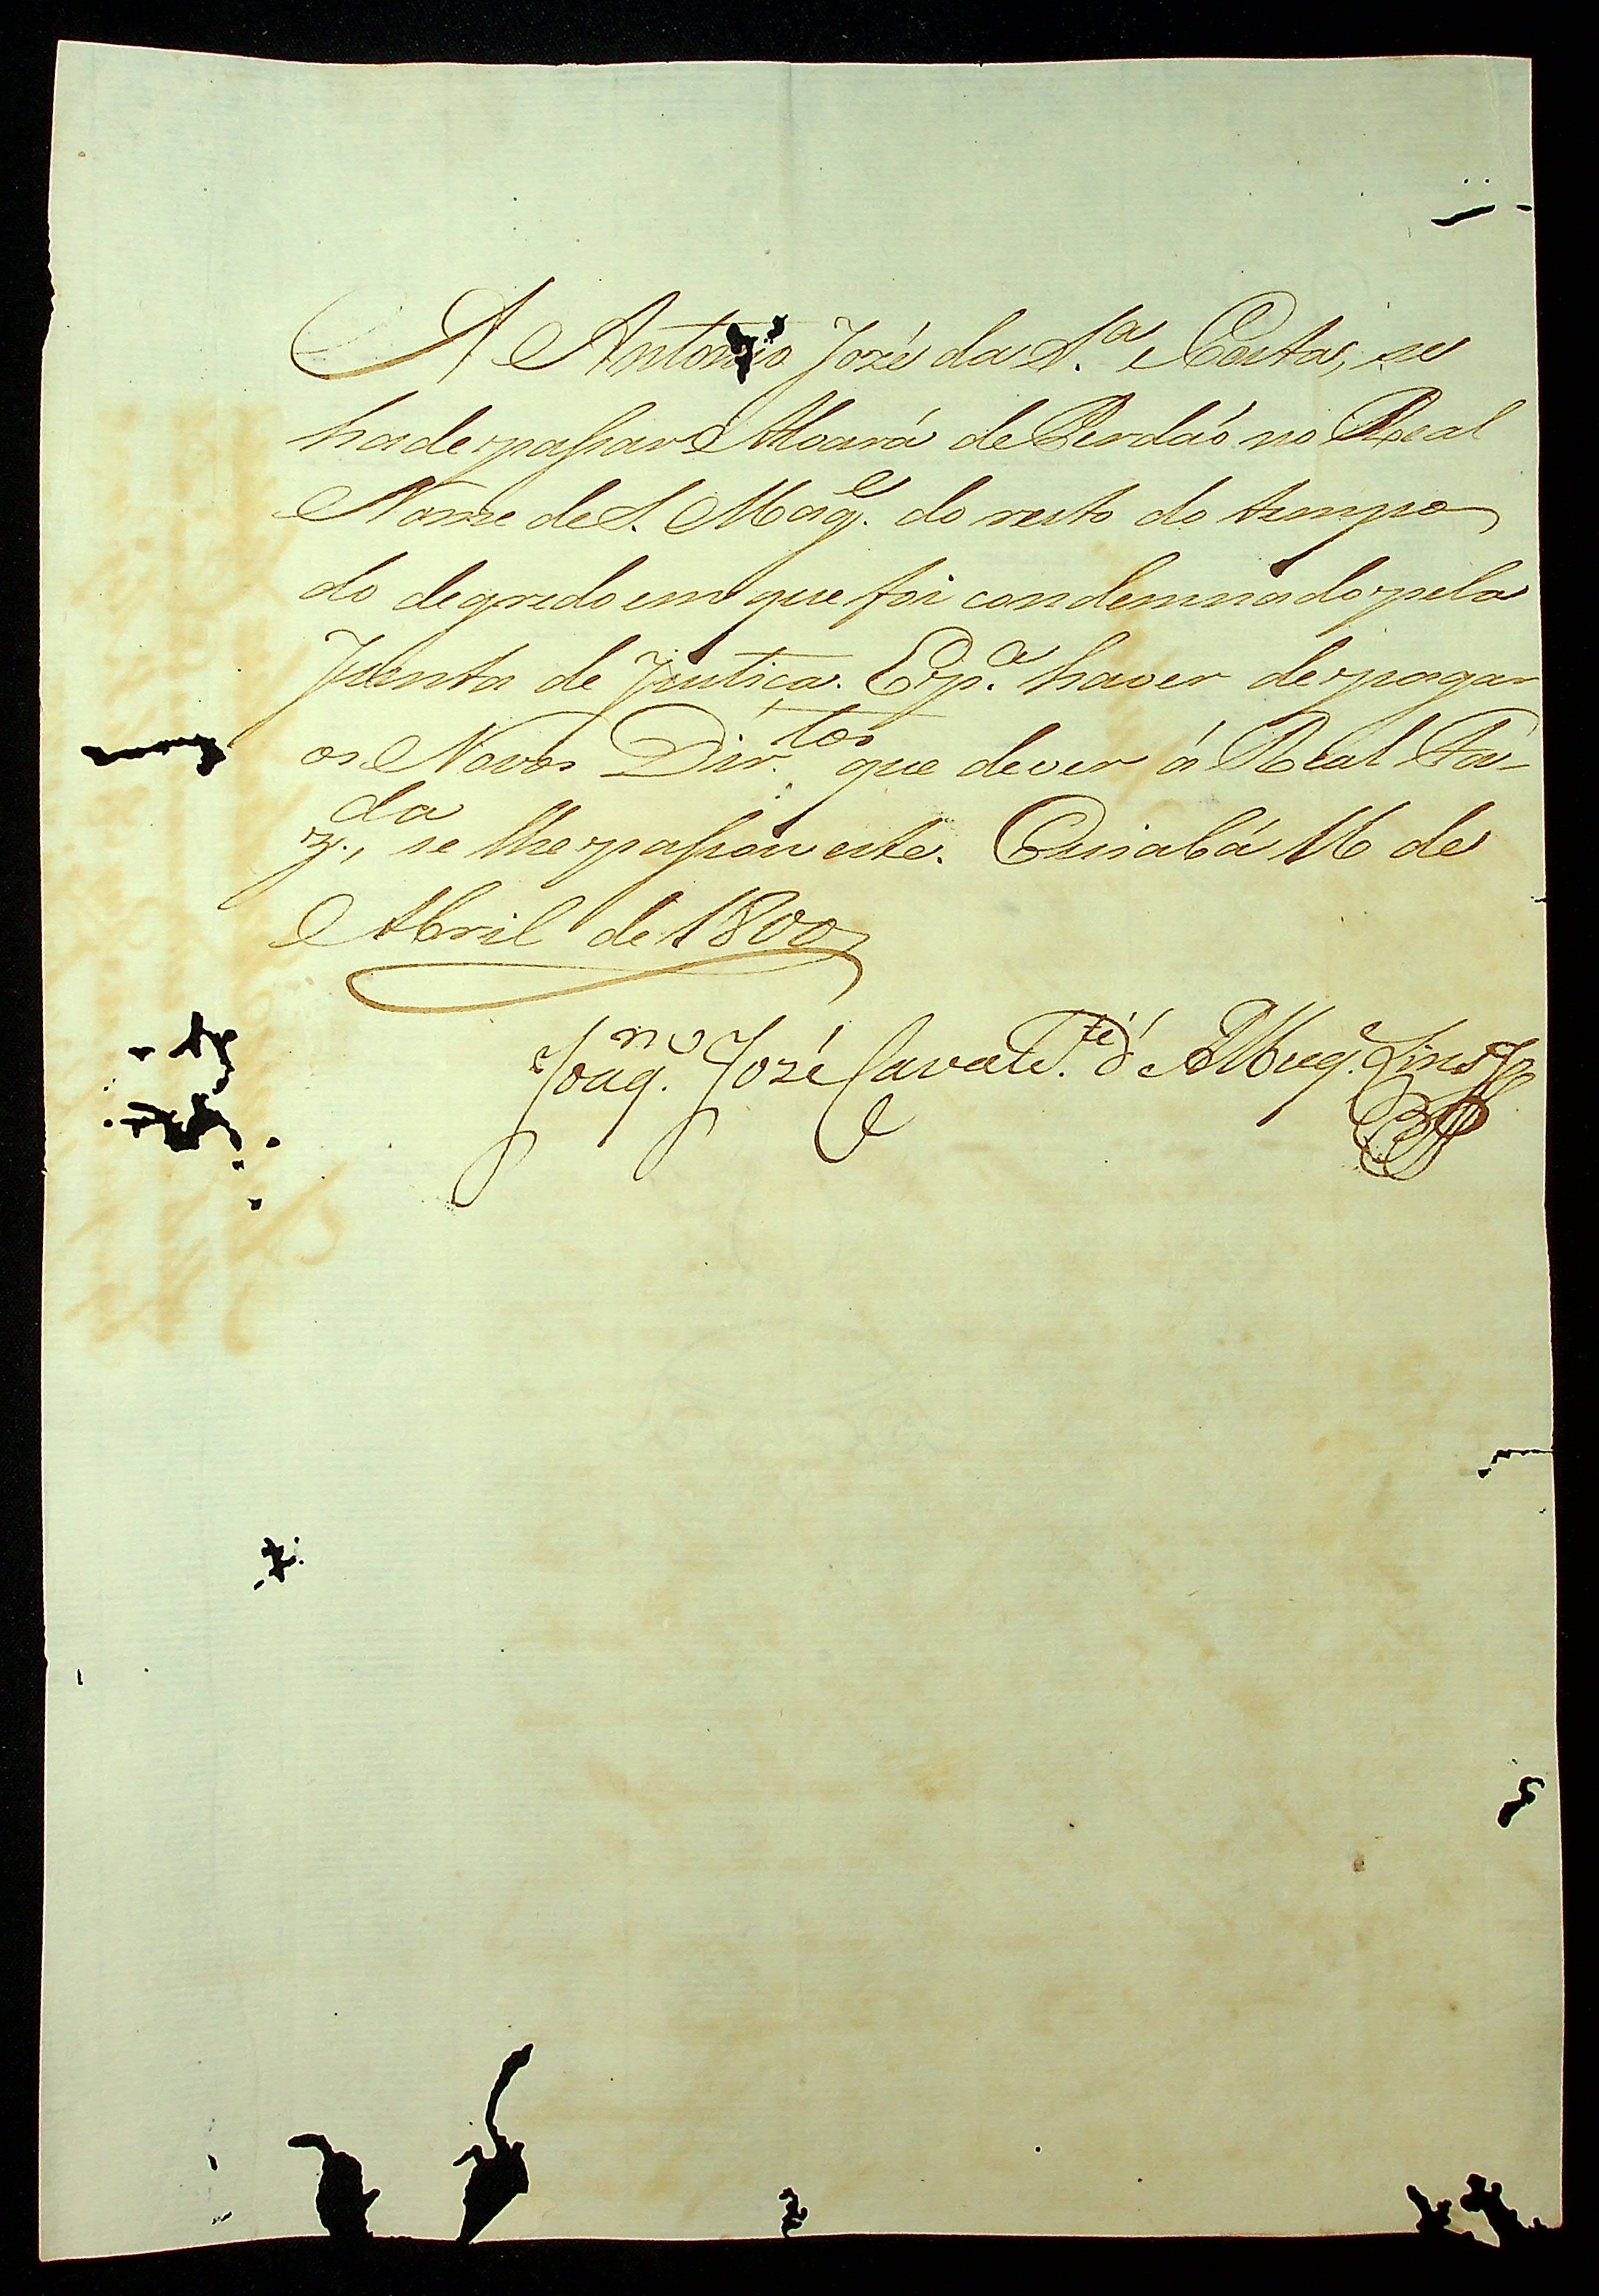 A Antonio Jozé da S.ª e Costa, se
hade passar Alvará de Perdaõ no Real
Nome de S. Mag.e do resto do tempo
do degredo em que foi condemnado pela
Junta de Justiça. E p.ª haver de pagar
os Novos Dir.tos que dever á Real Fa-
z.da, se lhe passou este. Cuiabá 16 de
Abril de 1800
Joaq.m José Cavalc.te d'Albuq.e Lins